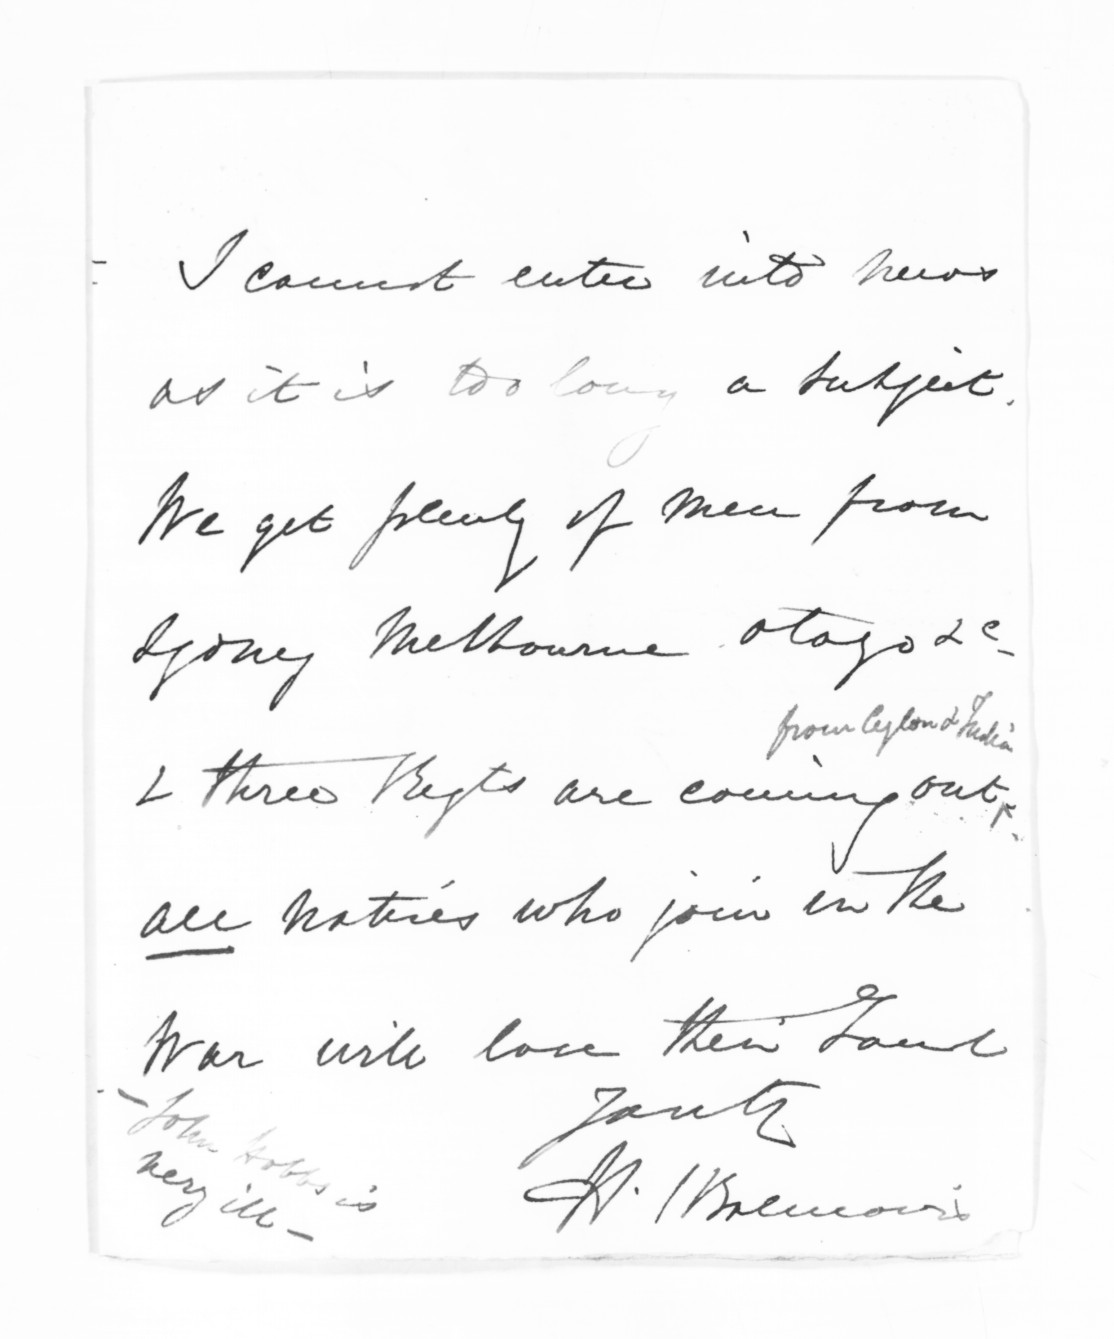 I cannot enter into news
as it is too long a subject.
We get plenty of men from
Sydney Melbourne Otago &c
from Ceylon & India
& three Regts are coming out
all natives who join in the
War will lose their Land
Yours
H.
John Hobbs is
very ill -